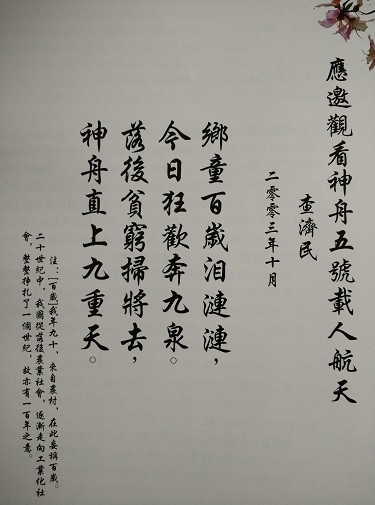 應邀觀看神舟五號載人航天
查濟民
二零零三年十月
鄉童百歲泪漣漣，
今日狂歡奔九泉。
落後貧窮掃將去，
神舟直上九重天。
注：［百歲］我年九十，來自農村，在此妄稱百歲。
二十世紀中，我國從落後農業社會，逐漸走向工業化社
會，整整掙扎了一個世紀，故亦有一百年之意。